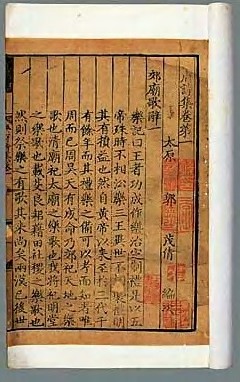 樂府詩集卷第一
太原 郭 茂倩 編次
郊廟歌辭一
樂記曰王者功成作樂治定制禮是以五
帝殊時不相沿樂三王異世不相襲禮明
其有損益也然自黃帝已來至於三代千
有餘年而其禮樂之備可以考而知者唯
周而已周頌昊天有成命郊祀天地之樂
歌也清廟祀太廟之樂歌也我將祀明堂
之樂歌也載芟良耜藉田社稷之樂歌也
然則祭樂之有歌其來尚矣兩漢已後世